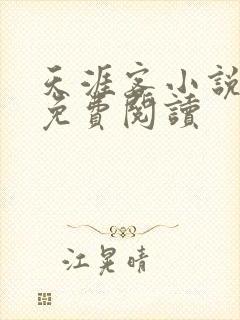 天涯客小說
免費閱讀
江晃晴